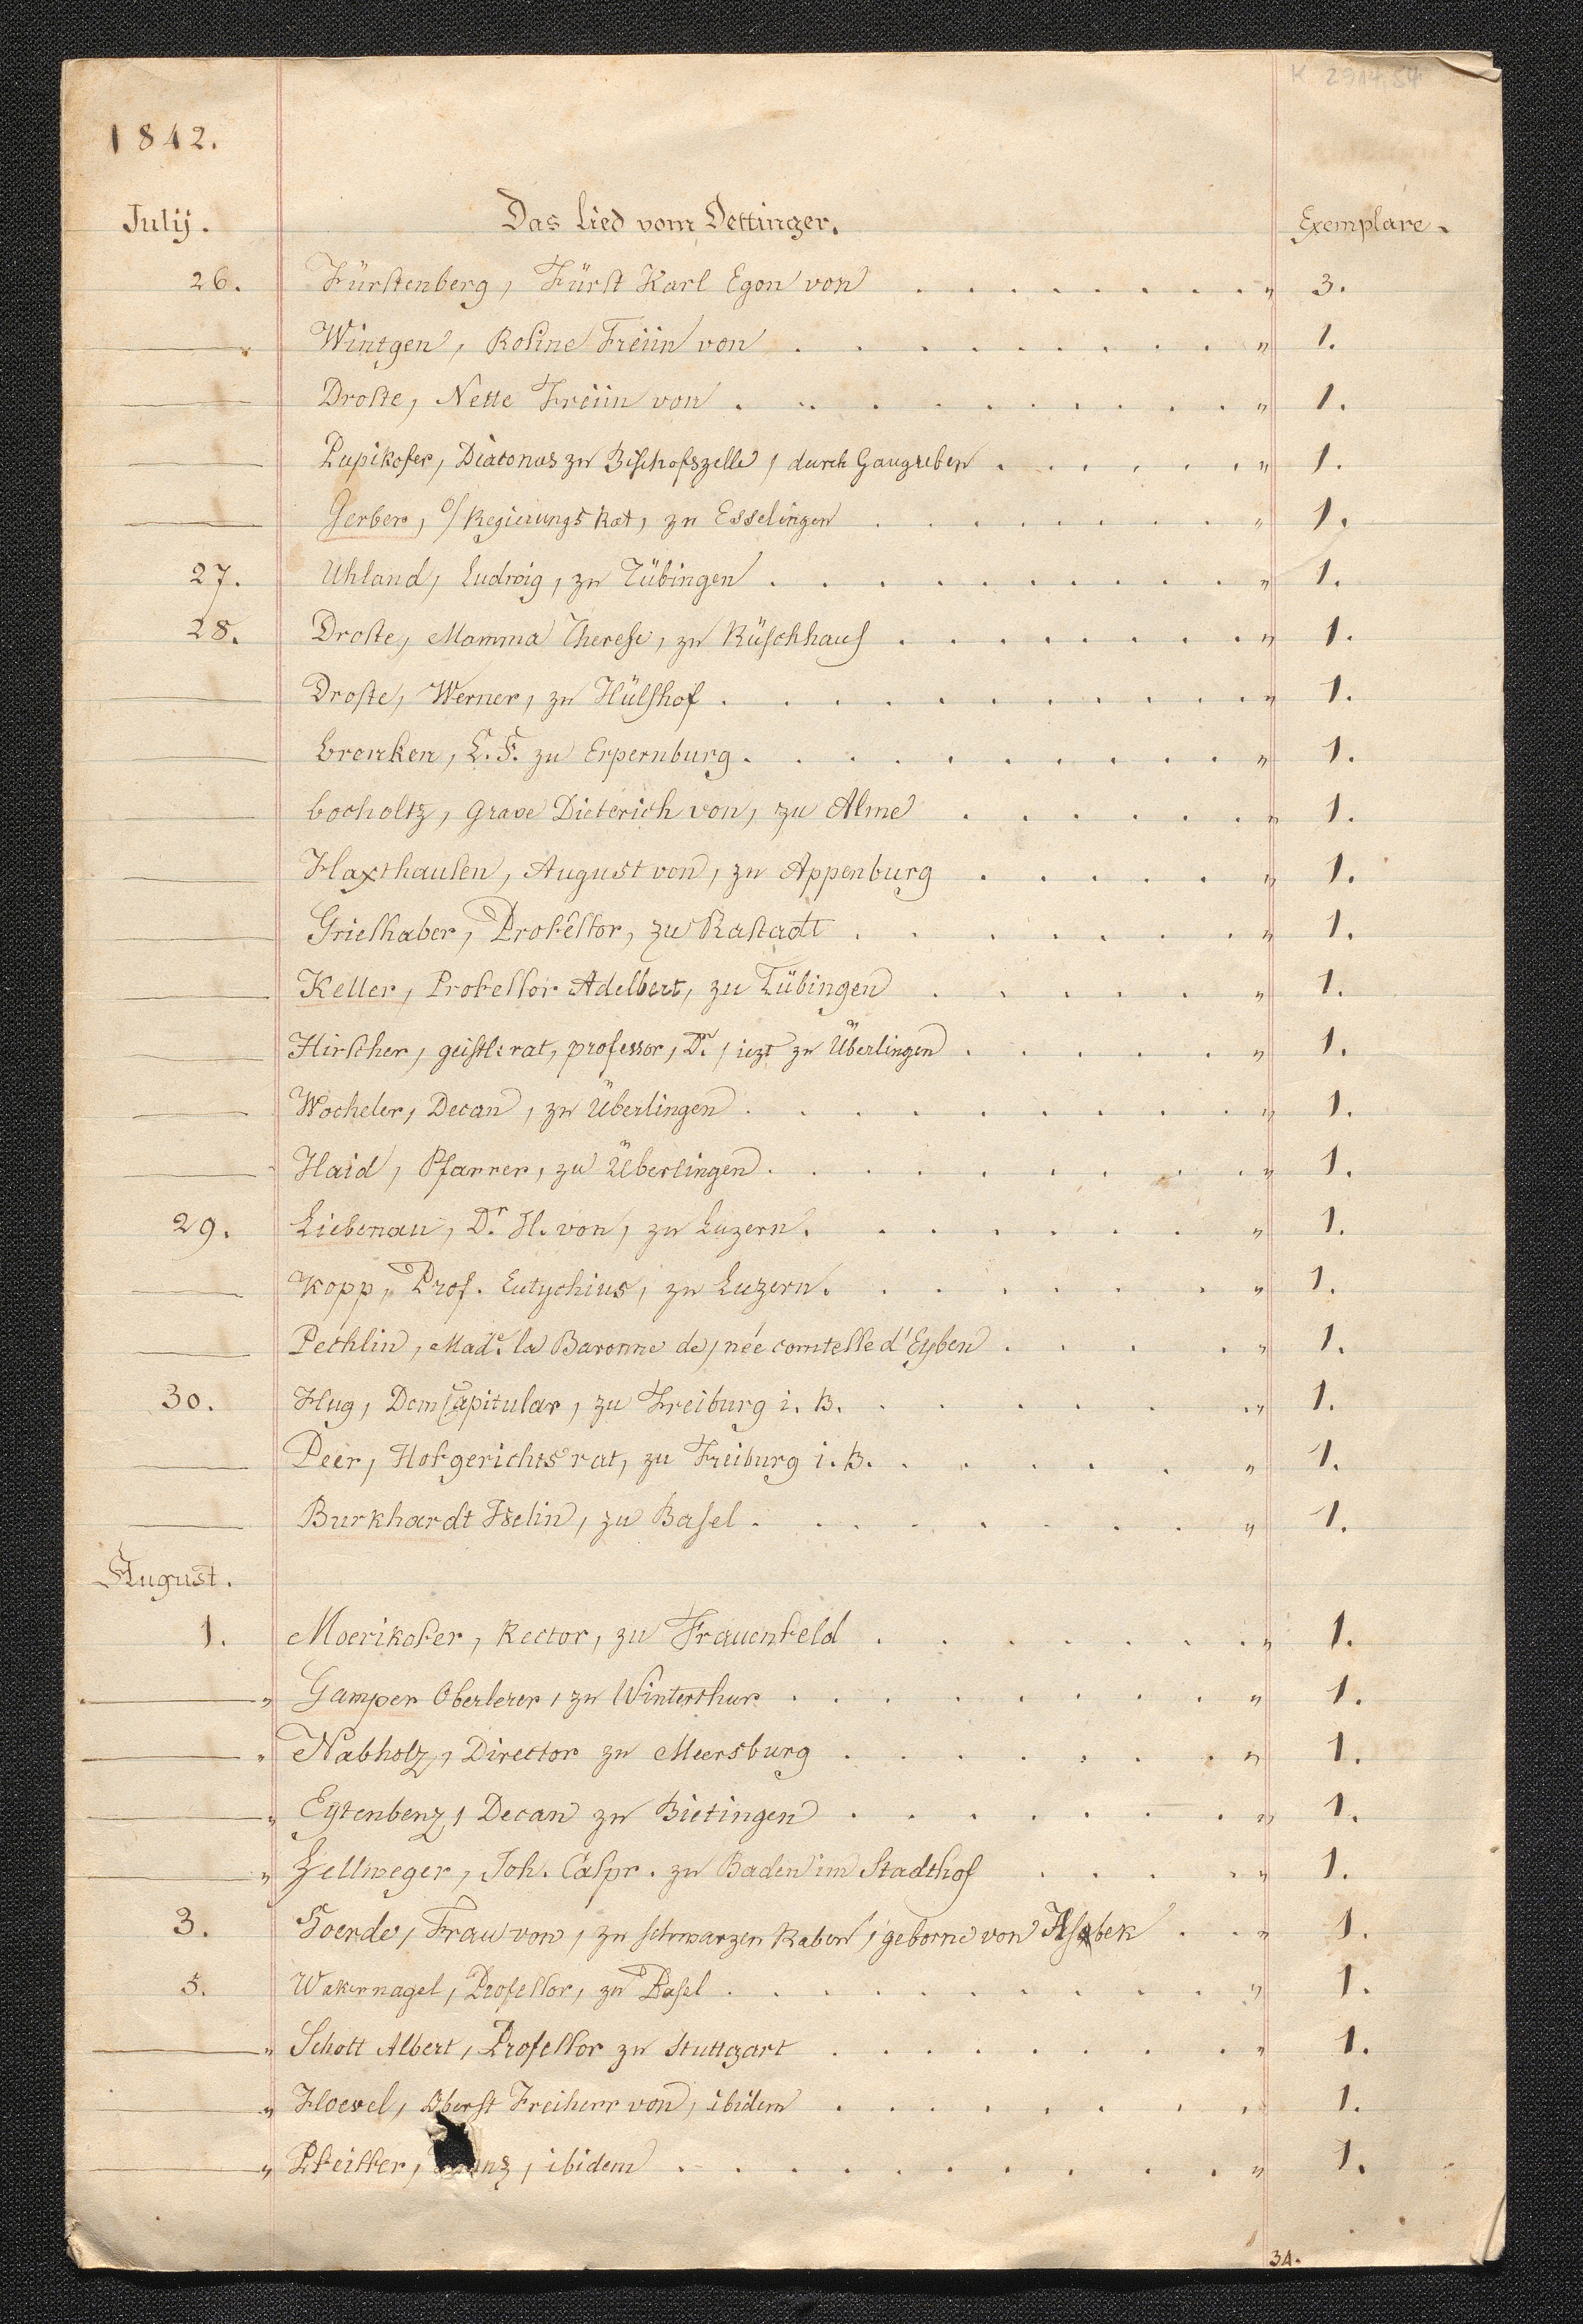 K 2914,54
1842.
Julij. Das Lied vom Dettinger. Exemplare.
26. Fürstenberg, Fürst Karl Egon von . . . . . . . . " 3.
Wintgen, Rosine Freiin von . . . . . . . . . " 1.
Droste, Nette Freiin von . . . . . . . . . . " 1.
Pupikofer, Diaconus zu Bischofszelle, durch Gaugreben . . . . . " 1.
Gerber, O/Regierungs Rat, zu Esselingen . . . . . . . " 1.
27. Uhland, Ludwig, zu Tübingen . . . . . . . . . " 1.
28. Droste, Mamma Therese, zu Rüschhaus . . . . . . . . " 1.
Droste, Werner, zu Hülshof . . . . . . . . . . " 1.
Brenken, L. F. zu Erpernburg . . . . . . . . . " 1.
Bocholtz, Grave Dieterich von, zu Alme . . . . . . " 1.
Haxthausen, August von, zu Appenburg . . . . . " 1.
Grieshaber, Professor, zu Rastadt . . . . . . . " 1.
Keller, Professor Adelbert, zu Tübingen . . . . . . " 1.
Hirscher, geistl: rat, professor, Dr. / iezt zu Überlingen . . . . . " 1.
Wocheler, Decan, zu Überlingen . . . . . . . . . " 1.
Haid, Pfarrer, zu Überlingen . . . . . . . . . " 1.
29. Liebenau, Dr. H. von, zu Luzern . . . . . . . " 1.
Kopp, Prof. Eutychius, zu Luzern . . . . . . . " 1.
Pechlin, Made. la Baronne de, née comtesse d'Eyben . . . . . " 1.
30. Hug, DomCapitular, zu Freiburg i. B. . . . . . . . " 1.
Peer, Hofgerichts rat, zu Freiburg i. B. . . . . . . " 1.
Burkhardt Iselin, zu Basel . . . . . . . . " 1.
August.
1. Moerikofer, Rector, zu Frauenfeld . . . . . . . " 1.
" Gamper Oberlerer, zu Winterthur . . . . . . . . " 1.
" Nabholz, Director zu Meersburg . . . . . . . " 1.
" Eytenbenz, Decan zu Bietingen . . . . . . . " 1.
" Zellweger, Joh. Caspr. zu Baden im Stadthof . . . . " 1.
3. Hoerde, Frau von, zu schwarzen Raben, geborne von . . " 1.
5. Wakernagel, Professor, zu Basel . . . . . . . . . " 1.
" Schott Albert, Professor zu Stuttgart . . . . . . . . " 1.
" Hoevel, Oberst Freiherr von, ibidem . . . . . . . . 1.
" Pfeiffer, ibidem . . . . . . . . . . " 1.
34.